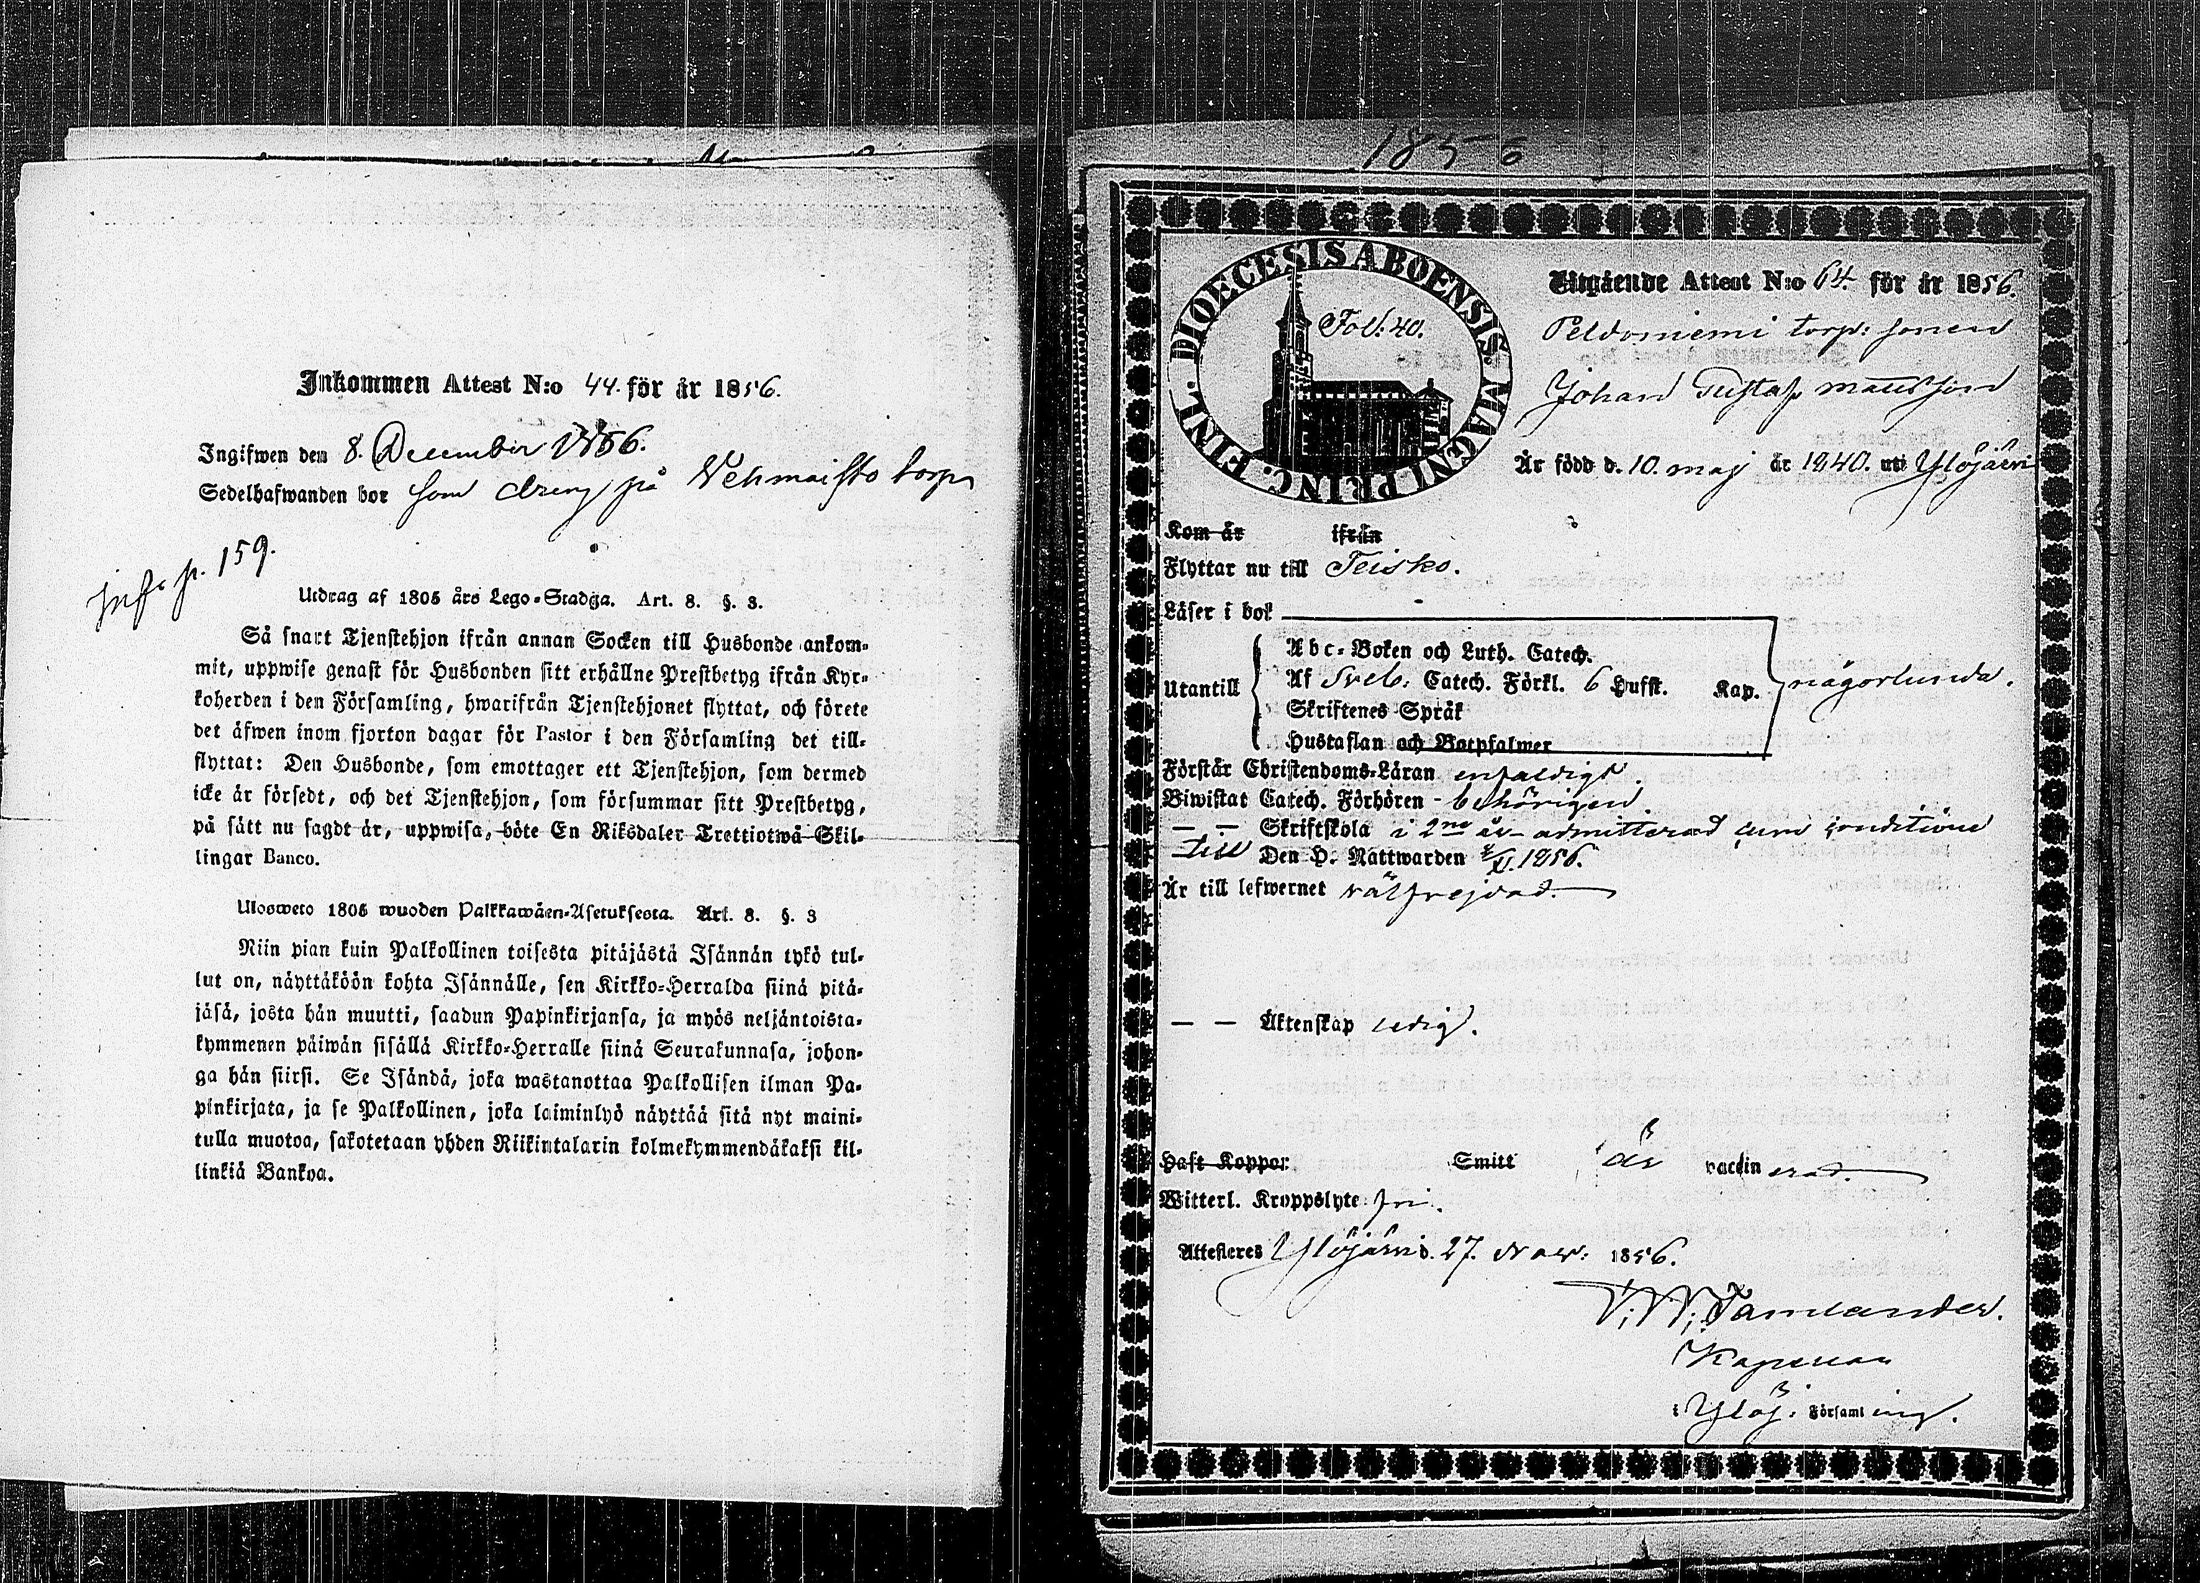 Inkommen Attest N:o 44. för år 1856.
Ingifwen den 8. December 1856.
Sedelhafwanden bor som dreng på Wehmaisto torp
inf. p. 159.
Utdrag af 1805 års Lego-Stadga. Art. 8. §. 3.
Så snart Tjenstehjon ifrån annan Socken till Husbonde ankom-
mit, uppwise genast för Husbonden sitt erhållne Prestbetyg ifrån Kyr-
koherden i den Församling, hwarifrån Tjenstehjonet flyttat, och förete
det äfwen inom fjorton dagar för Pastor i den Församling det till-
flyttat: Den Husbonde, som emottager ett Tjenstehjon, som dermed
icke är försedt, och det Tjenstehjon, som försummar sitt Prestbetyg,
på sätt nu sagdt är, uppwisa, böte En Riksdaler Trettiotwå Skil-
lingar Banco.
Ulosweto 1805 wuoden Palkkawäen-Asetuksesta. Art. 8. §. 3
Niin pian kuin Palkollinen toisesta pitäjästä Isännän tykö tul-
lut on, näyttäköön kohta Isännälle, sen Kirkko-Herralda siinä pitä-
jäsä, josta hän muutti, saadun Papinkirjansa, ja myös neljäntoista-
kymmenen päiwän sisällä Kirkko-Herralle siinä Seurakunnasa, johon-
ga hän siirsi. Se Isändä, joka wastanottaa Palkollisen ilman Pa-
pinkirjata, ja se Palkollinen, joka laiminlyö näyttää sitä nyt maini-
tulla muotoa, sakotetaan yhden Riikintalarin kolmekymmendäkaksi kil-
linkiä Bankoa.
1856
DIOECESIS ABOENSIS. MAGNI PRINC. FINL.
Fol. 40.
Utgående Attest N:o 64 för år 1856.
Peldoniemi torp: sonen
Johan Gustaf Mattsson
Är född d. 10. maj år 1840. uti Ylöjärvi
Kom år ifrån
Flyttar nu till Teisko.
Läser i bok
Utantill
Abc-Boken och Luth. Catech.
Af Sveb. Catech. Förkl. 6 Hufst. Kap.
Skriftenes Språk
Hustaflan och Botpsalmer
någorlunda.
Förstår Christendoms-Läran enfaldigt.
Biwistat Catech. Förhören - behörigen.
— — Skriftskola i 2ne år - admitterad cum conditione
till Den H. Nattwarden 1856.
Är till lefwernet välfrejdad.
— — Äktenskap ledig.
Haft Koppor: Smitt är vaccinerad.
Witterl. Kroppslyte fri.
Attesteres Ylöjärvi d. 27. Nov: 1856.
Kapellan
i Ylöj. Församling.